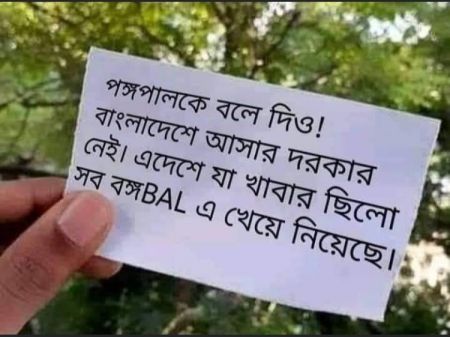 পঙ্গপালকে বলে দিও!
বাংলাদেশে আসার দরকার
নেই। এদেশে যা খাবার ছিলো
সব বঙ্গBAL এ খেয়ে নিয়েছে।